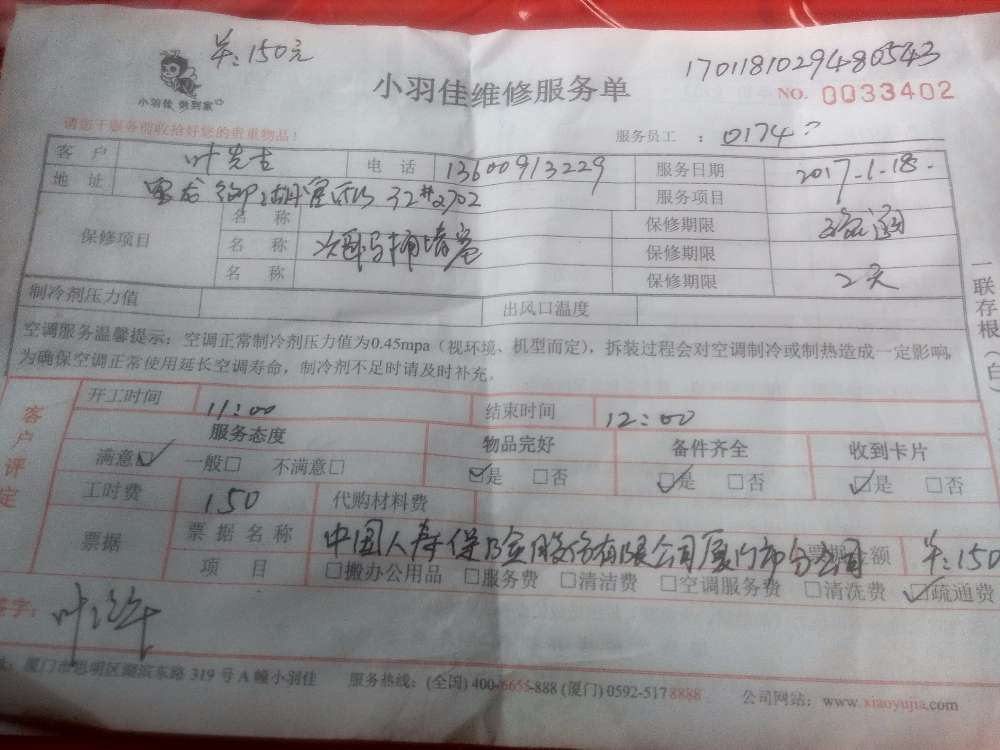 半:150元
17011810294480543
小羽佳 做到家
小羽佳维修服务单
NO. 0033402
请您于服务前收拾好您的贵重物品!
服务员工 : 0174
客户 叶先生 电话 13600913229 服务日期 2017.1.18.
地址 32#2702 服务项目 疏通
保修项目 名称 保修期限
名称 次卧马桶堵塞 保修期限
名称 保修期限 2天
制冷剂压力值 出风口温度
空调服务温馨提示:空调正常制冷剂压力值为0.45mpa(视环境、机型而定),拆装过程会对空调制冷或制热造成一定影响,
为确保空调正常使用延长空调寿命,制冷剂不足时请及时补充。
一联存根(白)
客户评定
开工时间 11:00 结束时间 12:00
服务态度 物品完好 备件齐全 收到卡片
满意☑ 一般□ 不满意□ ☑是 □否 ☑是 □否 ☑是 □否
工时费 150 代购材料费
票据 票据名称 中国人寿保险股份有限公司厦门市分公司 金额 半:150
项目 □搬办公用品 □服务费 □清洁费 □空调服务费 □清洗费 ☑疏通费
签字:
厦门市思明区湖滨东路 319 号 A 幢小羽佳 服务热线:(全国) 400-6655-888 (厦门) 0592-517 8888 公司网站:www.xiaoyujia.com